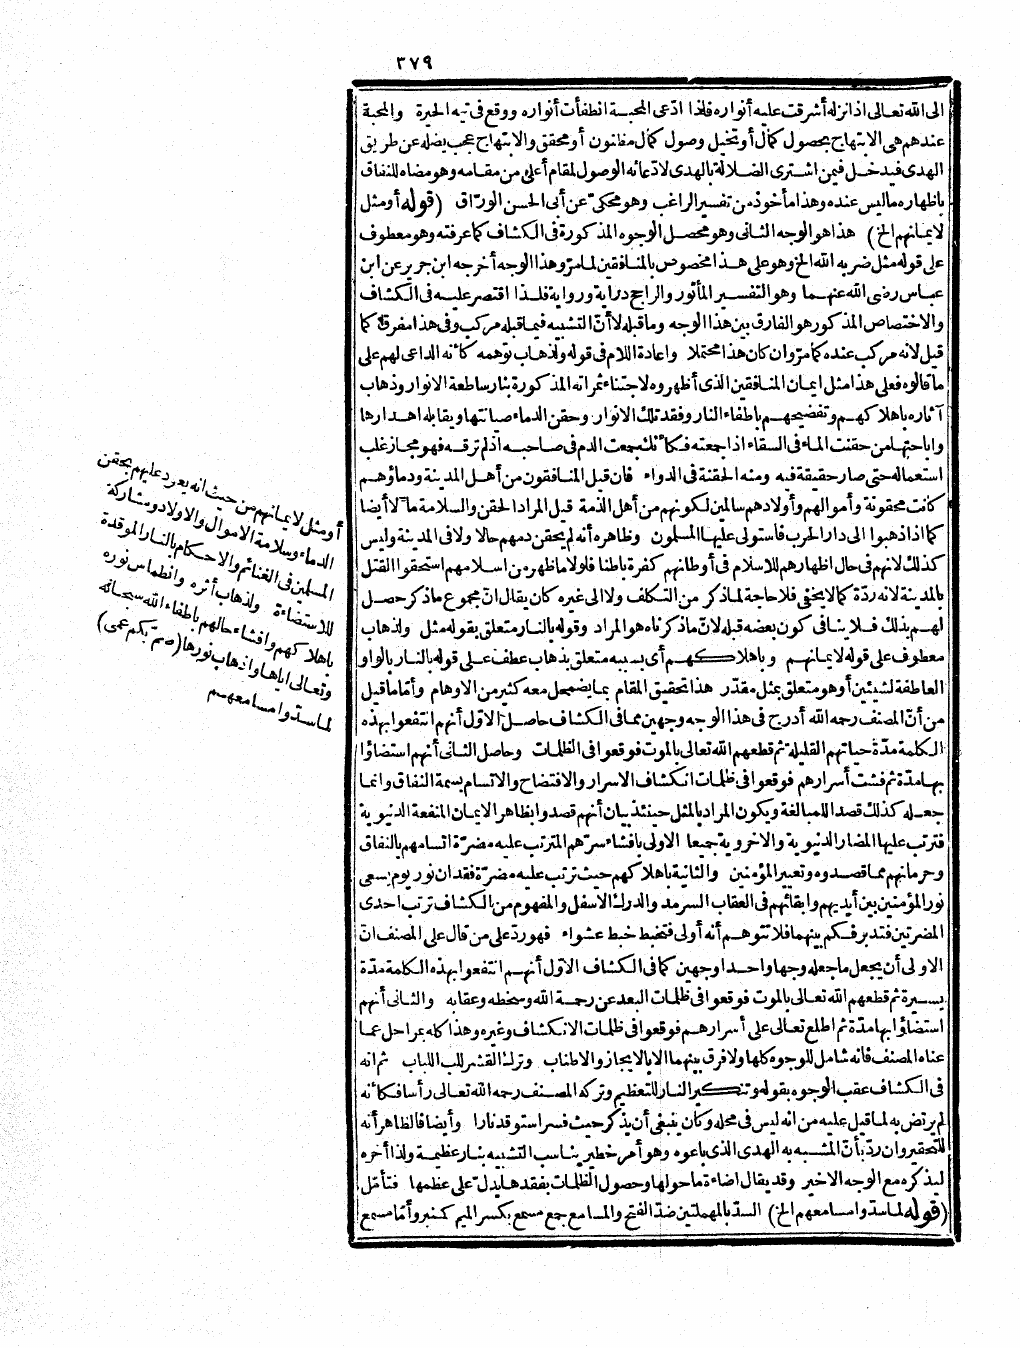 ٣٧٩
الى الله تعالى اذ انزله أشرقت عليه أنواره فلذا ادّعى المحبة انطفأت أنواره ووقع فى تيه الحيرة والمحبة
عندهم هى الابتهاج بحصول كمال أو تخيل وصول كمال مظنون أو محقق والابتهاج عجب يضله عن طريق
الهدى فيدخل فيمن اشترى الضلالة بالهدى لادعائه الوصول لمقام أعلى من مقامه وهو مضاه للنفاق
باظهاره ما ليس عنده وهذا مأخوذ من تفسير الراغب وهو محكىّ عن أبى الحسن الورّاق (قوله أو مثل
لايمانهم الخ) هذا هو الوجه الثانى وهو محصل الوجوه المذكورة فى الكشاف كما عرفته وهو معطوف
على قوله مثل ضربه الله الخ وهو على هذا مخصوص بالمنافقين لما مرّ وهذا الوجه أخرجه ابن جرير عن ابن
عباس رضى الله عنهما وهو التفسير المأثور والراجح دراية ورواية فلذا اقتصر عليه فى الكشاف
والاختصاص المذكور هو الفارق بين هذا الوجه وما قبله لا أنّ التشبيه فيما قبله مركب وفى هذا مفرق كما
قيل لانه مركب عنده كما مرّ وان كان هذا محتملا واعادة اللام فى قوله ولذهاب توهمه كأنه الداعى لهم على
ما قالوه فعلى هذا مثل ايمان المنافقين الذى أظهروه لاجتناء ثمراته المذكورة بنار ساطعة الانوار وذهاب
آثاره باهلاكهم وتفضيحهم باطفاء النار وفقد تلك الانوار وحقن الدماء صيانتها ويقابله اهدارها
واباحتها من حقنت الماء فى السقاء اذا جمعته فكأنك جمعت الدم فى صاحبه اذ لم ترقه فهو مجاز غلب
استعماله حتى صار حقيقة فيه ومنه الحقنة فى الدواء فان قيل المنافقون من أهل المدينة ودماؤهم
كانت محقونة وأموالهم وأولادهم سالمين لكونهم من أهل الذمة قيل المراد الحقن والسلامة مآلا أيضا
كما اذا ذهبوا الى دار الحرب فاستولى عليها المسلمون وظاهره أنه لم يحقن دمهم حالا ولا فى المدينة وليس
كذلك لانهم فى حال اظهارهم للاسلام فى أوطانهم كفرة باطنا فلولا ما ظهره من اسلامهم استحقوا القتل
بالمدينة لانه ردّة كما لا يخفى فلا حاجة لما ذكر من التكلف ولا الى غيره كان يقال انّ مجموع ما ذكر حصل
لهم بذلك فلا ينافى كون بعضه قبله لانّ ما ذكرناه هو المراد وقوله بالنار متعلق بقوله مثل ولذهاب
معطوف على قوله لايمانهم وباهلاكهم أى بسببه متعلق بذهاب عطف على قوله بالنار بالواو
العاطفة لشيئين أو هو متعلق بمثل مقدّر هذا تحقيق المقام بما يضمحل معه كثير من الاوهام وأمّا ما قيل
من أنّ المصنف رحمه الله أدرج فى هذا الوجه وجهين مما فى الكشاف حاصل الاوّل أنهم انتفعوا بهذه
الكلمة مدّة حياتهم القليلة ثم قطعهم الله تعالى بالموت فوقعوا فى الظلمات وحاصل الثانى أنهم استضاؤا
بها مدة ثم فشت أسرارهم فوقعوا فى ظلمات انكشاف الاسرار والافتضاح والاتسام بسمة النفاق وانما
جعله كذلك قصدا للمبالغة ويكون المراد بالمثل حينئذ بيان أنهم قصدوا بظاهر الايمان المنفعة الدنيوية
فترتب عليها المضار الدنيوية والاخروية جميعا الاولى بافشاء سرّهم المترتب عليه مضرّة اتسامهم بالنفاق
وحرمانهم مما قصدوه وتعيير المؤمنين والثانية باهلاكهم حيث ترتب عليه مضرّة فقدان نور يوم يسعى
نور المؤمنين بين أيديهم وابقائهم فى العقاب السرمد والدرك الاسفل والمفهوم من الكشاف ترتب احدى
المضرتين فتدبر فكم بينهما فلا تتوهم أنه أولى فتخبط خبط عشواء فهو ردّ على من قال على المصنف انّ
الاولى أن يجعل ما جعله وجها واحدا وجهين كما فى الكشاف الاوّل أنهم انتفعوا بهذه الكلمة مدّة
يسيرة ثم قطعهم الله تعالى بالموت فوقعوا فى ظلمات البعد عن رحمة الله وسخطه وعقابه والثانى أنهم
استضاؤا بها مدّة ثم اطلع تعالى على أسرارهم فوقعوا فى ظلمات الانكشاف وغيره وهذا كله بمراحل عما
عناه المصنف فانه شامل للوجوه كلها ولا فرق بينهما الا بالايجاز والاطناب وترك القشر للب اللباب ثم انه
فى الكشاف عقب الوجوه بقوله وتنكير النار للتعظيم وتركه المصنف رحمه الله تعالى رأسا فكأنه
لم يرتض به لما قيل عليه من انه ليس فى محله وكان ينبغى أن يذكر حيث فسر استوقد نارا وأيضا فالظاهر أنه
للتحقير وان ردّ بأنّ المشبه به الهدى الذى باعوه وهو أمر خطير يناسب التشبيه بنار عظيمة ولذا أخره
ليذكره مع الوجه الاخير وقد يقال اضاءة ما حولها وحصول الظلمات بفقدها يدل على عظمها فتأمّل
(قوله لما سدّوا مسامعهم الخ) السدّ بالمهملتين ضدّ الفتح والمسامع جمع مسمع بكسر الميم كمنبر وأمّا مسمع
أو مثل لايمانهم من حيث انه يعود عليهم بحقن
الدماء وسلامة الاموال والاولاد ومشاركة
المسلمين فى الغنائم والاحكام بالنار الموقدة
للاستضاءة ولذهاب أثره وانطماس نوره
باهلاكهم وافشاء حالهم باطفاء الله سبحانه
وتعالى اياها واذهاب نورها (صمّ بكم عمى)
لما سدّوا مسامعهم